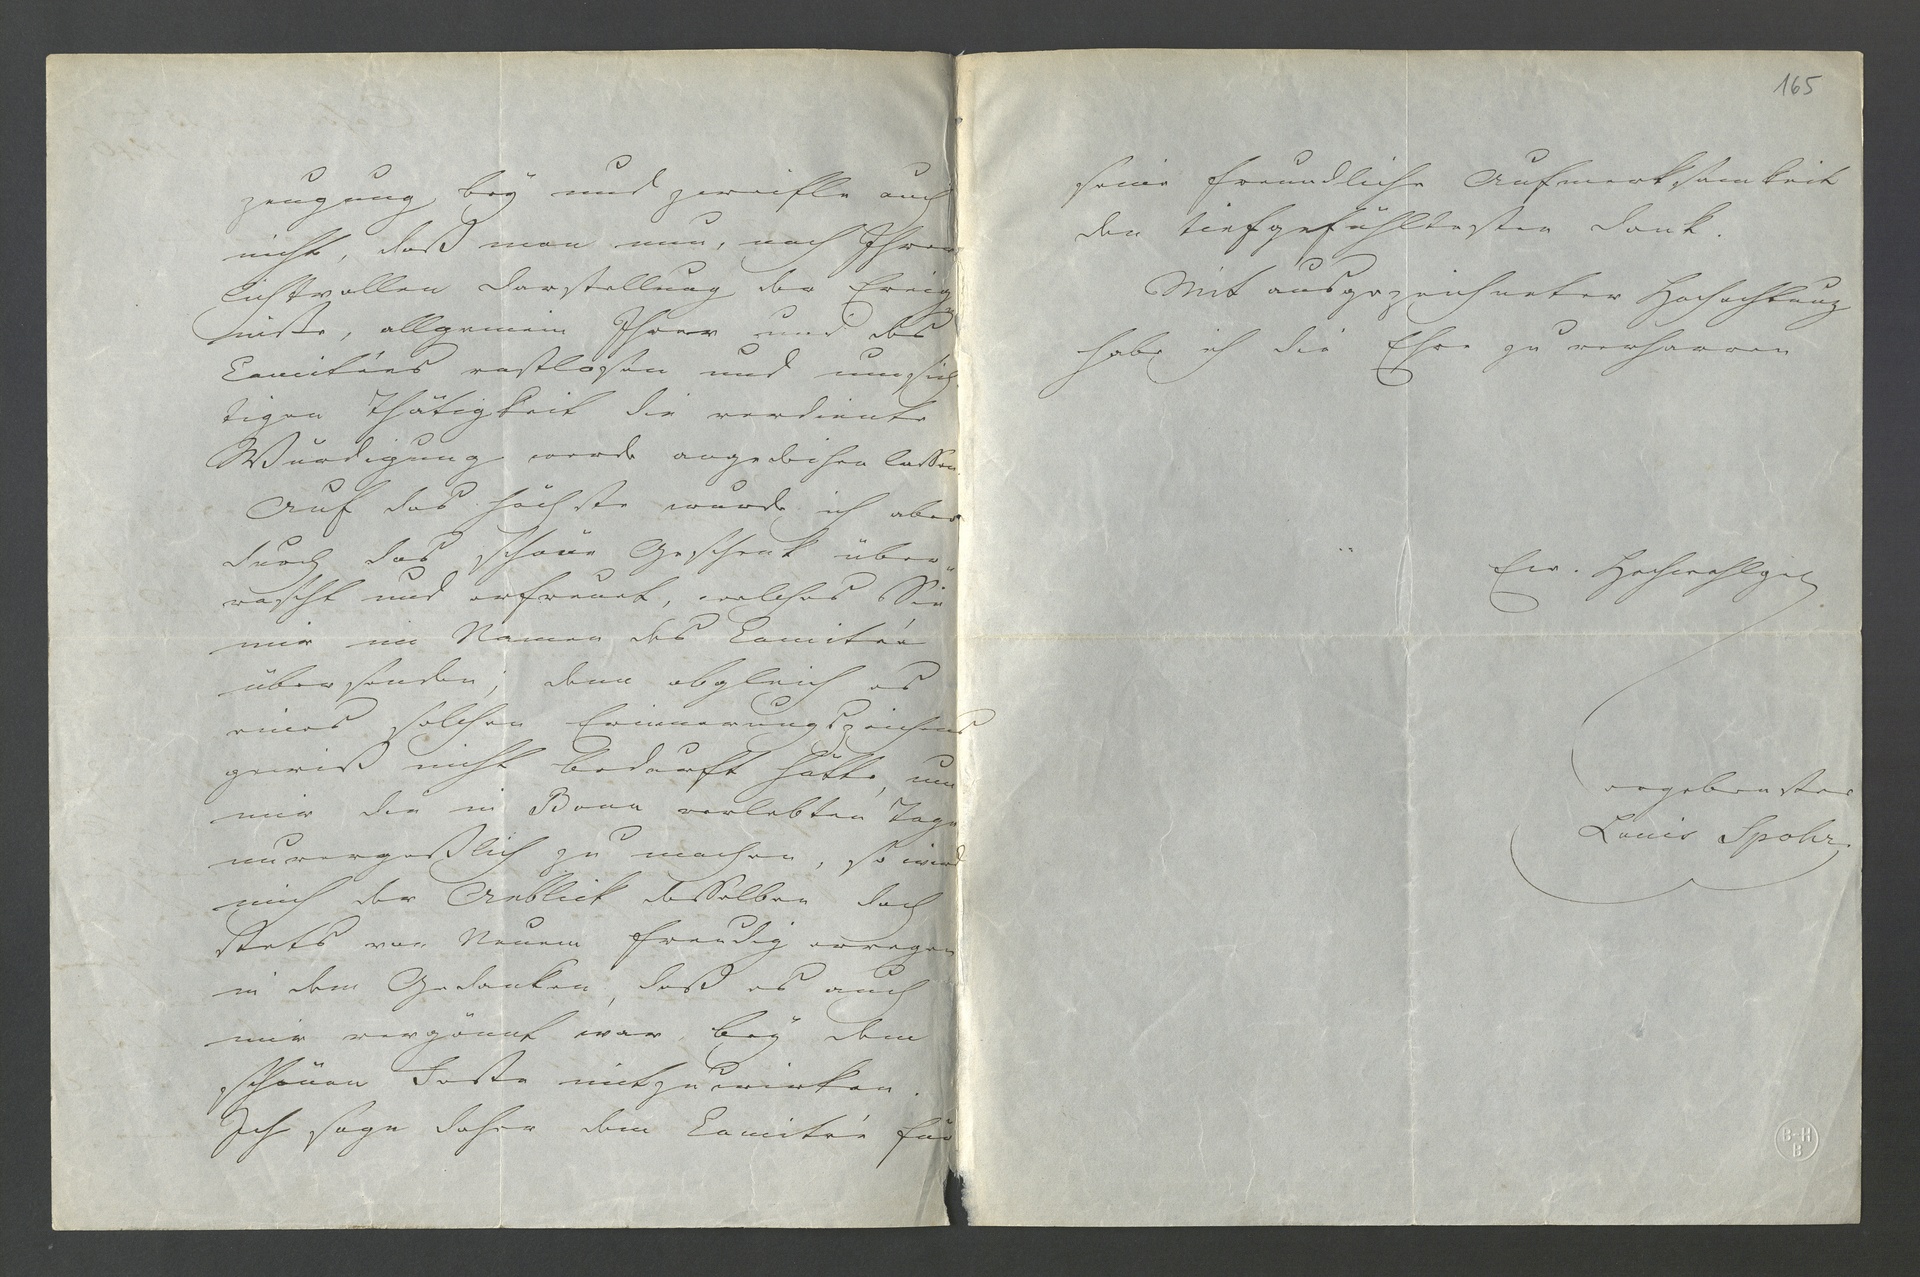 zeugung bey und zweifle auch
nicht, daß man nun, nach Ihrer
lichtvollen Darstellung der Ereig-
nisse, allgemein Ihrer und des
Comitées rastlosen und umsich-
tigen Thätigkeit die verdiente
Würdigung werde angedeihen lassen.
Auf das höchste wurde ich aber
durch das schöne Geschenk über-
rascht und erfreuet, welches Sie
mir im Namen des Comitée
übersenden; denn obgleich es
eines solchen Erinnerungszeichens
gewiß nicht bedurft hätte, um
mir die in Bonn verlebten Tage
unvergeßlich zu machen, so wird
mich der Anblick desselben doch
stets von Neuem freudig erregen
in dem Gedanken, daß es auch
mir vergönnt war bey dem
schönen Feste mitzuwirken.
Ich sage daher dem Comitée für
165
seine freundliche Aufmerksamkeit
den tiefgefühltesten Dank.
Mit ausgezeichneter Hochachtung
habe ich die Ehre zu verharren
Ew. Hochwohlgeb
ergebenster
Louis Spohr.
B-H
B